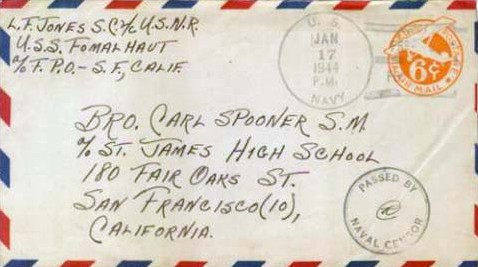 L.F. JONES S.C.2/c U.S.N.R.
U.S.S. FOMALHAUT
c/o F.P.O. - S.F., CALIF.
U. S.
JAN
17
1944
P.M.
NAVY
6¢
AIR MAIL
BRO. CARL SPOONER S.M.
c/o ST. JAMES HIGH SCHOOL
180 FAIR OAKS ST.
SAN FRANCISCO (10),
CALIFORNIA.
PASSED BY
NAVAL CENSOR